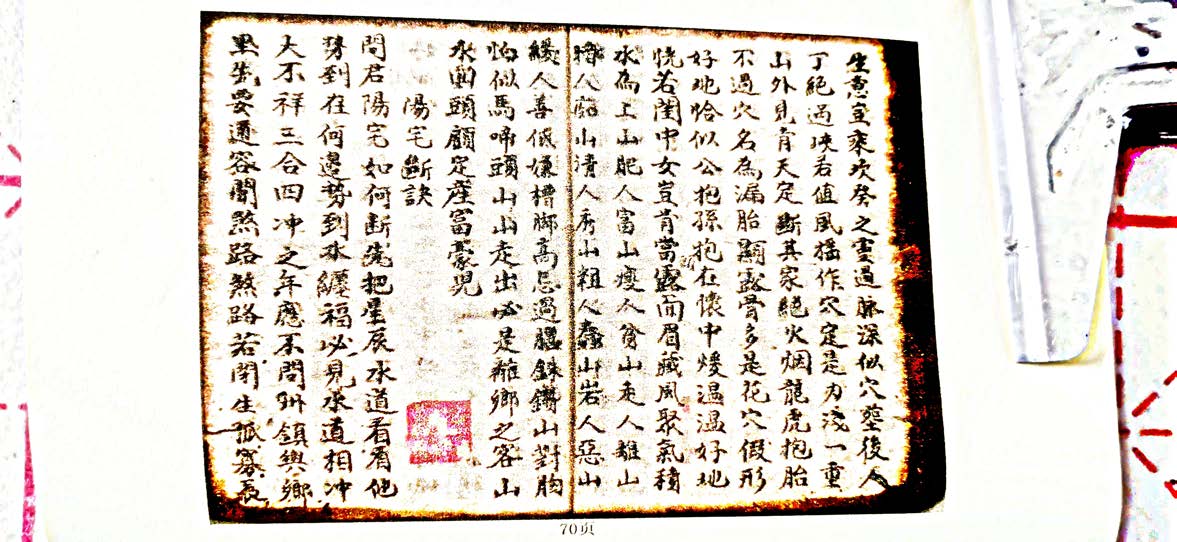 生意豈乘坎癸之靈過脉深似穴塟後人
丁絶過峽若值風搖作穴定是力淺一重
山外見青天定斷其家絶火烟龍虎抱胎
不過穴名為漏胎顯露骨多是花穴假形
好地恰似公抱孫抱在懷中煖温温好地
恍若閨中女豈肯當露面眉藏風聚氣積
水為上山肥人富山瘦人貧山走人離山
人山清人秀山粗人蠢山岩人惡山
緩人善低嫌槽脚高忌過腮鎗山對胸
怕似馬啼頭山山走出必是離鄉之客山
水回頭顧定産富豪兒
陽宅斷訣
問君陽宅如何断先把星辰水道看看他
势到在何邉势到水纏福必見水道相冲
大不祥三合四冲之年應不問州鎮與鄉
里先要通容開煞路煞路若閉生孤寡長
70页